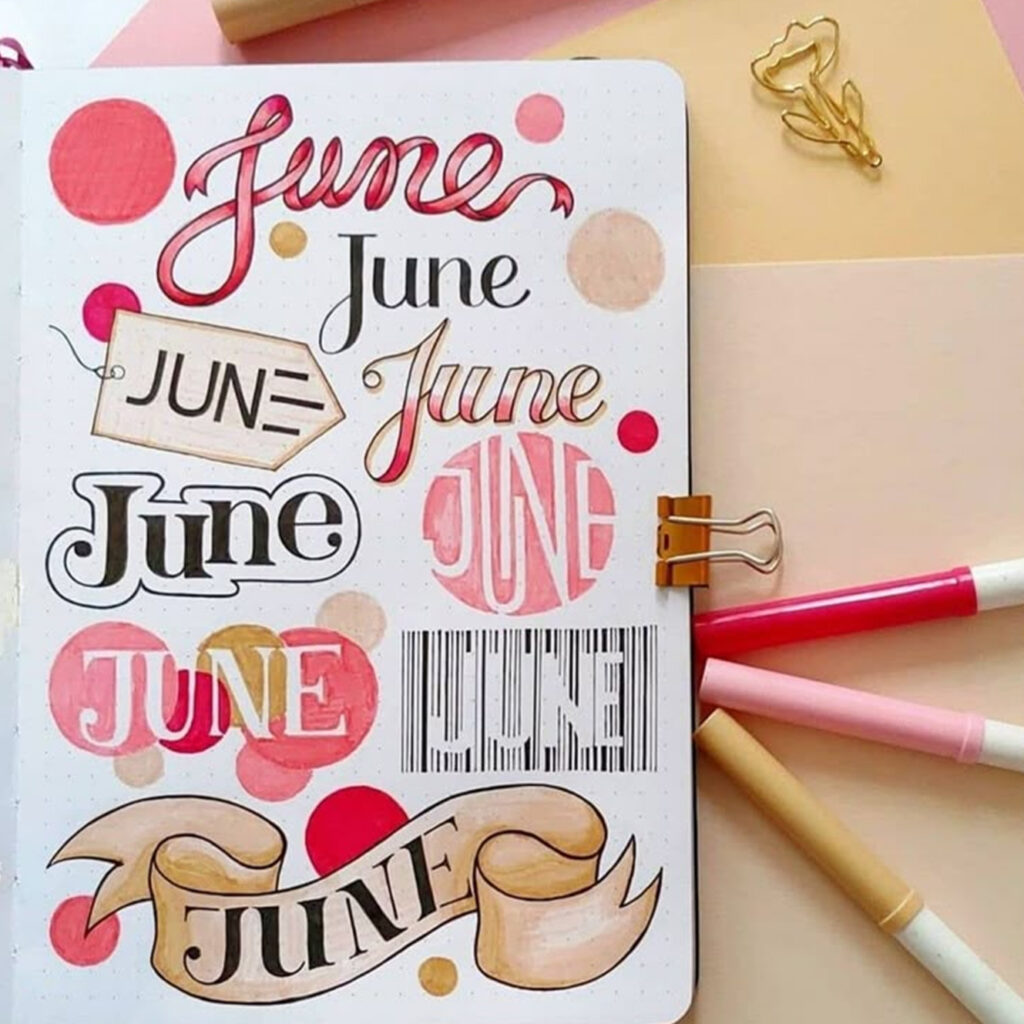 June
June
JUNE
June
June
JUNE
JUNE
JUNE
JUNE